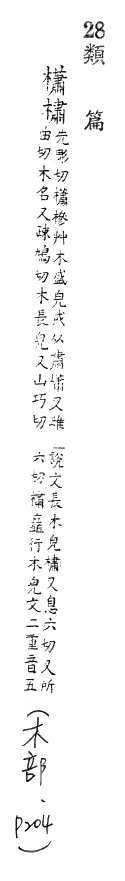 28 類篇
櫹橚
先彫切櫹槮艸木盛皃或从肅橚又雖
由切木名又疎鳩切木長皃又山巧切
說文長木皃橚又息六切又所
六切橚矗行木皃文二重音五
(木部、p204)